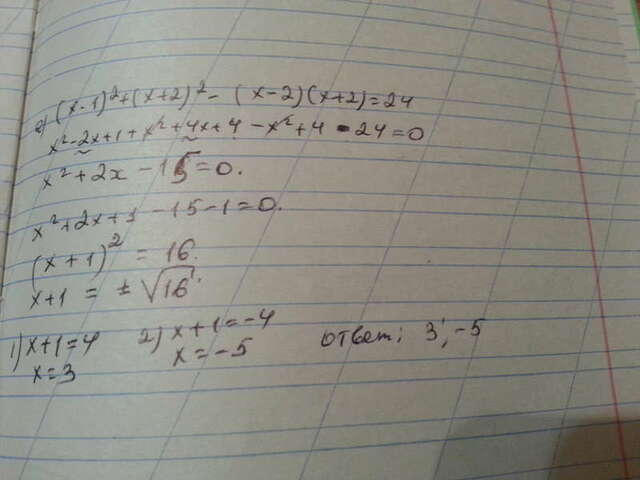 2) (x-1)²+(x+2)² - (x-2)(x+2)=24
x²-2x+1+x²+4x+4-x²+4-24=0
x²+2x-15=0.
x²+2x+1-15-1=0.
(x+1)² = 16.
x+1 = ±√16.
1) x+1=4 2) x+1=-4 ответ: 3; -5
x=3 x=-5